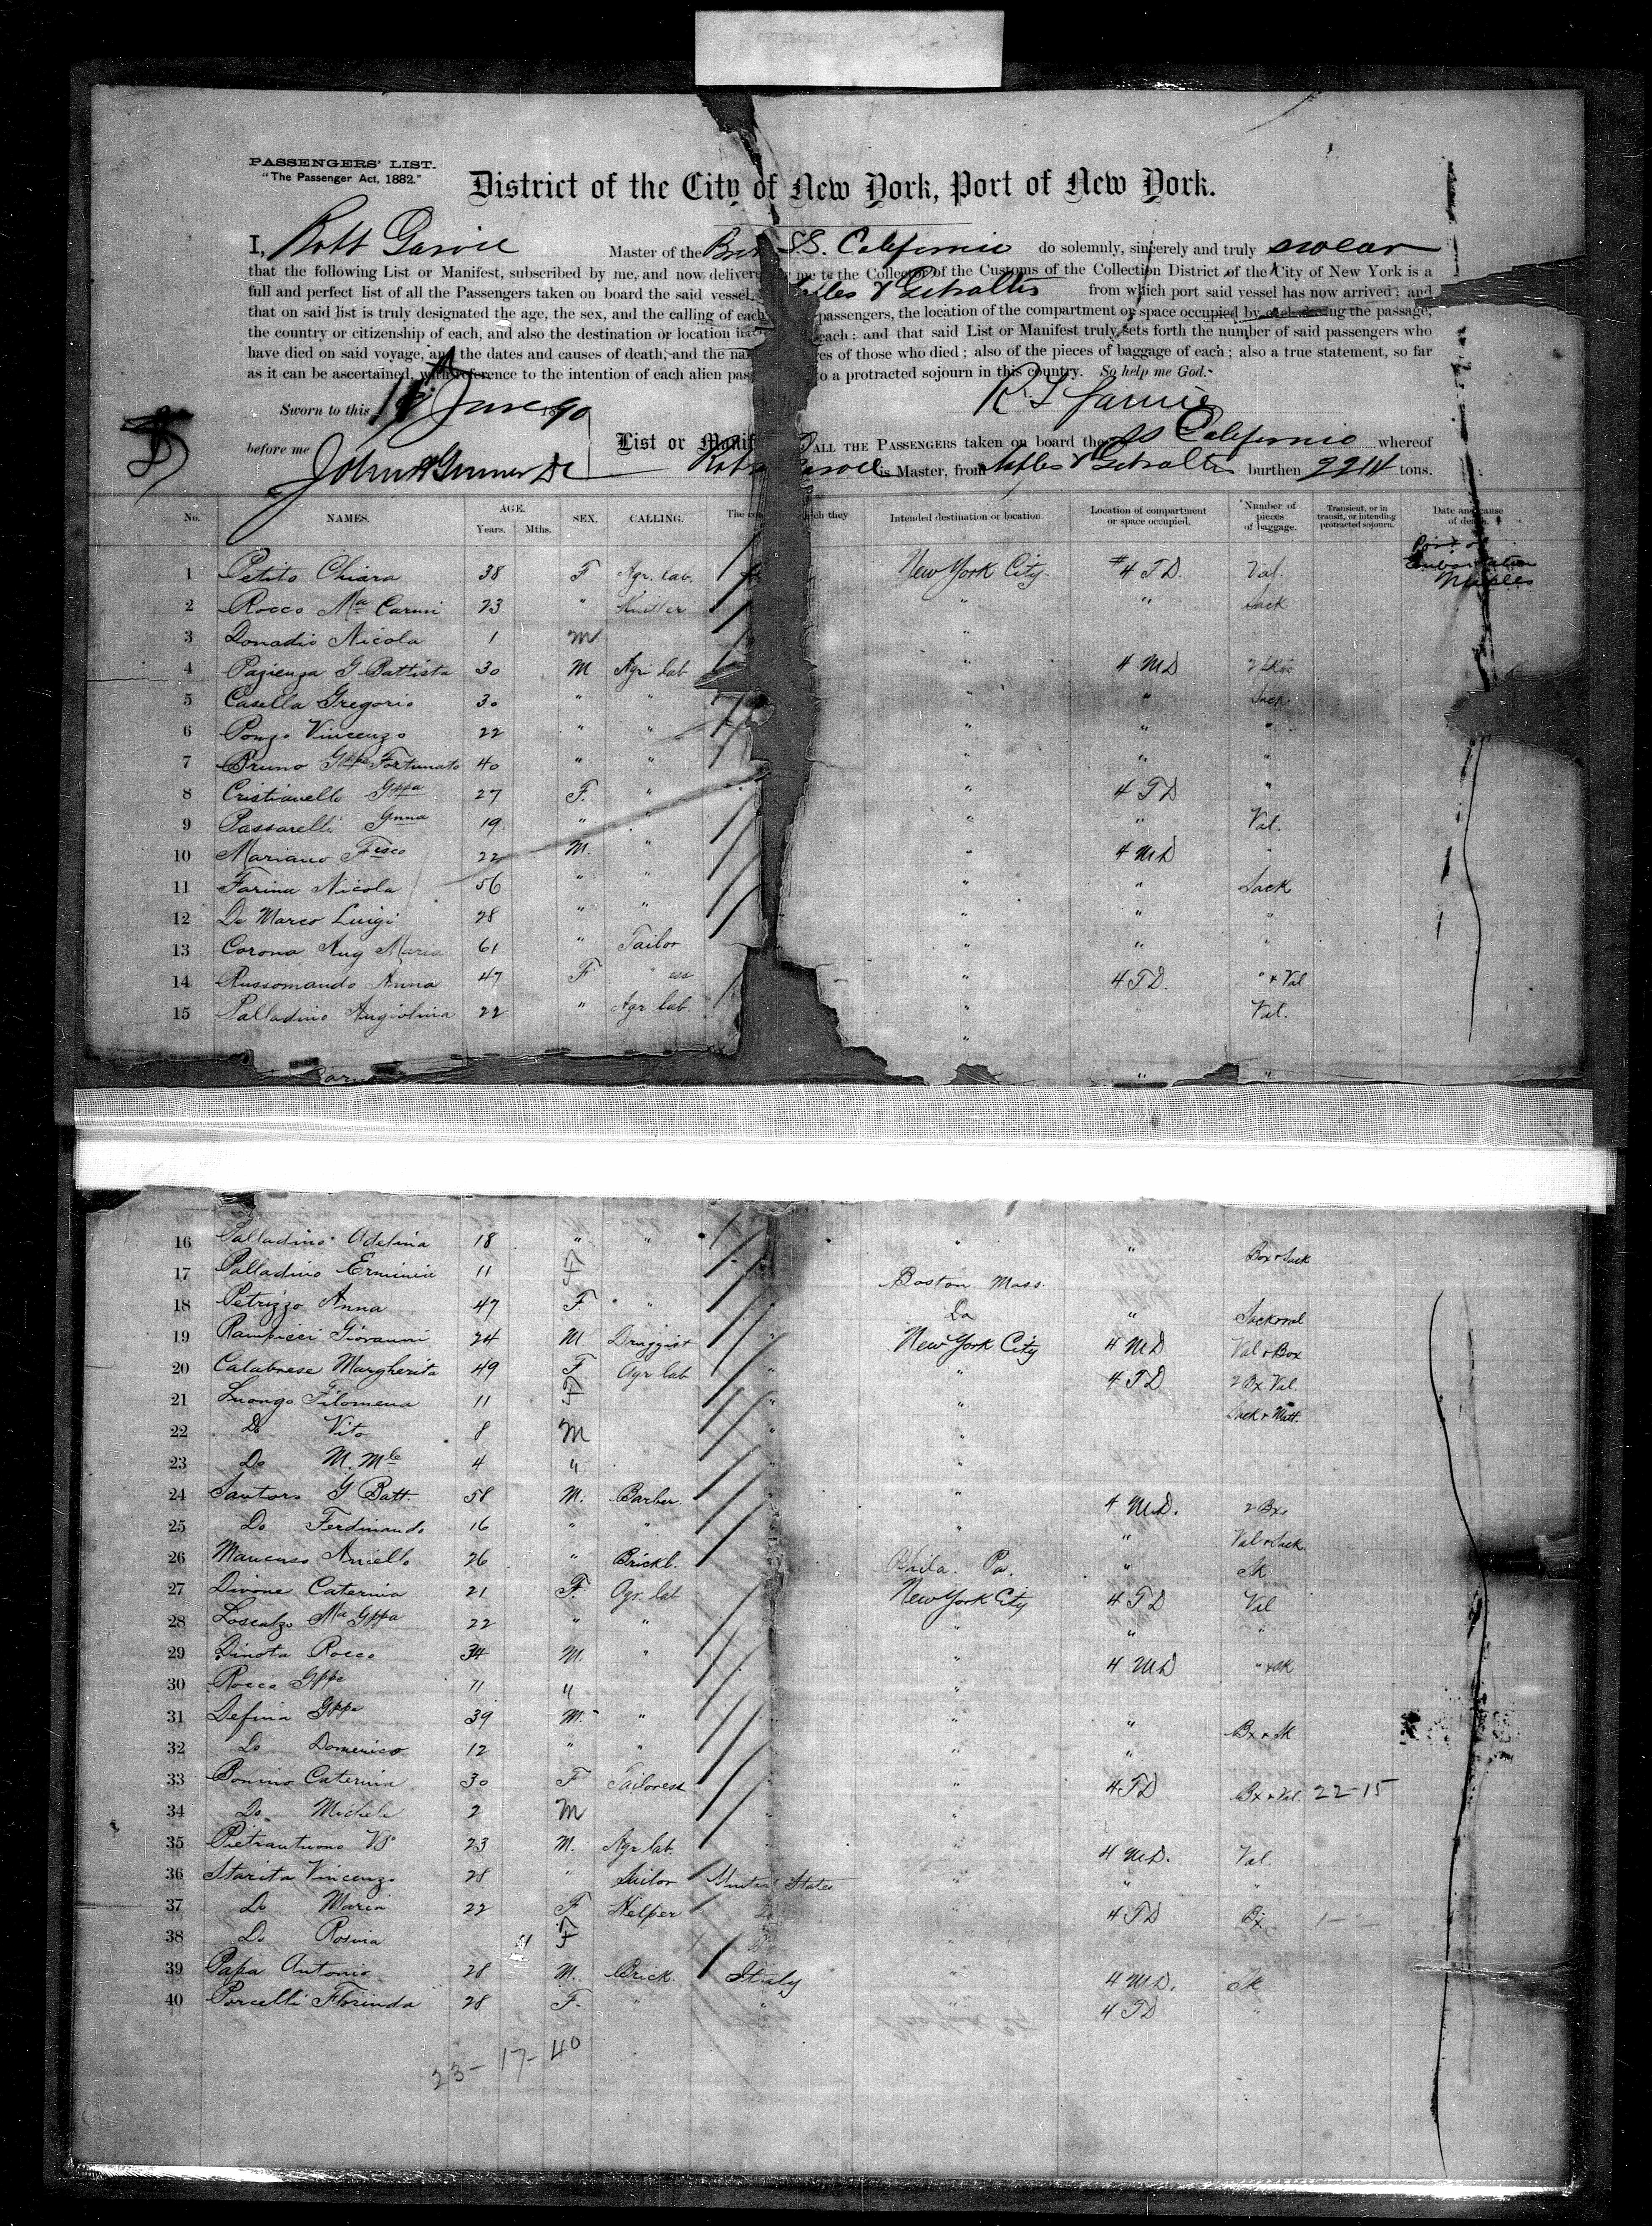 PASSENGERS' LIST.
"The Passenger Act, 1882."
District of the City of New York, Port of New York.
I, Robt Garvie Master of the SS. California do solemnly, sincerely and truly swear
that the following List or Manifest, subscribed by me, and now delivered me to the Collector of the Customs of the Collection District of the City of New York is a
full and perfect list of all the Passengers taken on board the said vessel & Gibraltar from which port said vessel has now arrived; and
that on said list is truly designated the age, the sex, and the calling of each passengers, the location of the compartment or space occupied by each during the passage,
the country or citizenship of each, and also the destination or location each: and that said List or Manifest truly sets forth the number of said passengers who
have died on said voyage, and the dates and causes of death, and the of those who died; also of the pieces of baggage of each; also a true statement, so far
as it can be ascertained, with reference to the intention of each alien to a protracted sojourn in this country. So help me God.
Sworn to this June 1890
before me
List or ALL THE PASSENGERS taken on board the SS California whereof
is Master, from Naples & Gibraltar burthen 2214 tons.
No. NAMES. AGE. Years. Mths. SEX. CALLING. The they Intended destination or location. Location of compartment or space occupied. Number of pieces of baggage. Transient, or in transit, or intending protracted sojourn. Date and cause of death.
Port of Embarkation Naples
1 Petito Chiara 38 F Agr. lab. New York City #4 TD. Val.
2 Rocco Ma Carmi 23 " Knitter " " Sack
3 Donadio Nicola 1 M "
4 Pazienza G Battista 30 M Agr lab " 4 MD
5 Casella Gregorio 30 " " " " Sack
6 Ponzo Vincenzo 22 " " " " "
7 Bruno Gppe Fortunato 40 " " " " "
8 Cristianello Gppa 27 F. " " 4 TD "
9 Passarelli Gnna 19 " " " " Val.
10 Mariano Fesco 22 M. " " 4 MD "
11 Farina Nicola 56 " " " " Sack
12 De Marco Luigi 28 " " " " "
13 Corona Aug Maria 61 " Tailor " " "
14 Russomando Anna 47 F " ess " 4 TD. " & Val
15 Palladino Angiolina 22 " Agr lab. " " Val.
16 Palladino Adelina 18 " " " " Box & Sack
17 Palladino Erminia 11 F Boston Mass.
18 Petrizzo Anna 47 F. " Do "
19 Rampicci Giovanni 24 M Druggist " New York City 4 MD Val & Box
20 Calabrese Margherita 49 F Agr lab " " 4 TD 2 Bx Val
21 Luongo Filomena 11 F " " Sack & Matt.
22 Do Vito 8 M " "
23 Do M. Mle 4 " " "
24 Santoro G Batt. 58 M. Barber. " 4 MD. 2 Bx
25 Do Ferdinando 16 " " " " Val & Sack
26 Mancuso Aniello 26 " Brickl. Phila. Pa. " Sk
27 Divone Caterina 21 F. Agr lab New York City 4 TD Val
28 Loscalzo Ma Gppa 22 " " " " "
29 Dinota Rocco 34 M. " " 4 MD " & Sk
30 Rocca Gppe 11 " "
31 Defina Gppe 39 M. " " " Bx & Sk
32 Do Domenico 12 " " " "
33 Bonino Caterina 30 F Tailoress " 4 TD Bx & Val. 22-15
34 Do Michele 2 M " "
35 Pietrantuono Vo 23 M. Agr lab. " 4 MD. Val.
36 Starita Vincenzo 28 " Sailor United States " " "
37 Do Maria 22 F Helper " 4 TD Bx 1-
38 Do Rosina 11 F
39 Papa Antonio 28 M. Brick. Italy " 4 MD. Sk
40 Porcelli Florinda 28 F. " " " 4 TD "
23-17-40